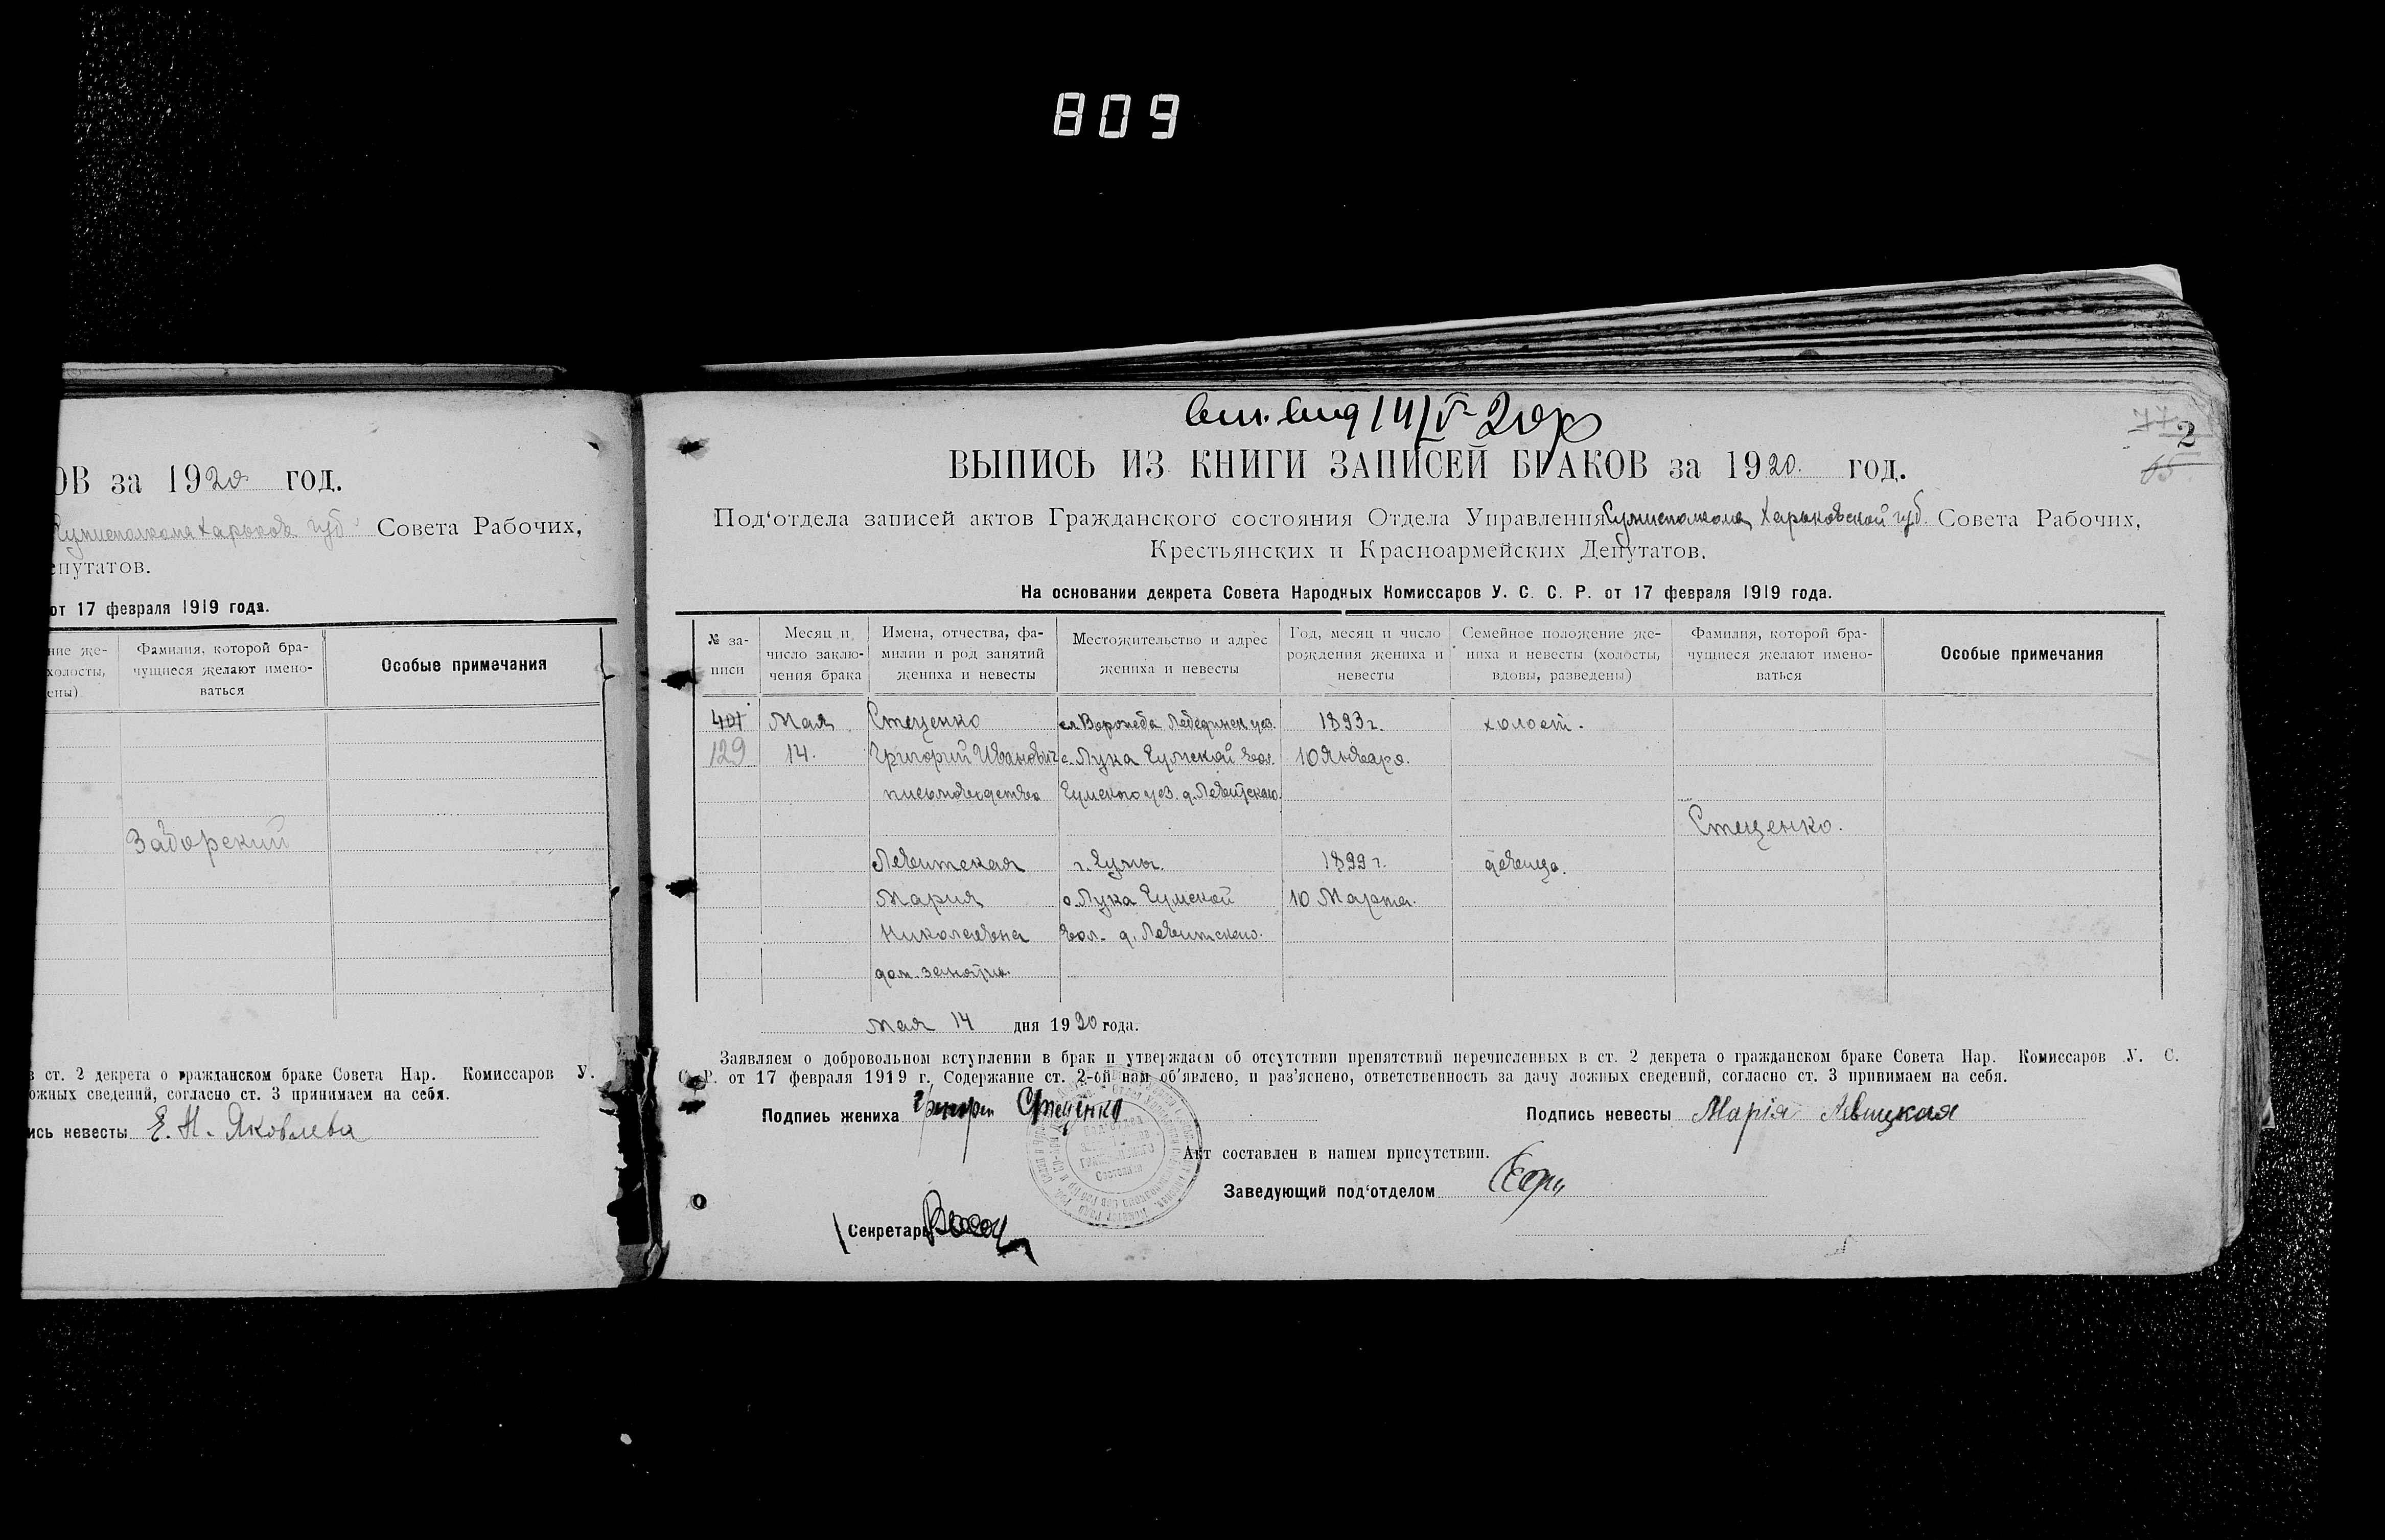 809
ОВ за 1920 год.
Харьков. губ. Совета Рабочих,
епутатов.
от 17 февраля 1919 года.
ние же-
холосты,
ены)
Фамилия, которой бра-
чущиеся желают имено-
ваться
Особые примечания
Задорский
в ст. 2 декрета о гражданском браке Совета Нар. Комиссаров У.
ожных сведений, согласно ст. 3 принимаем на себя.
ись невесты Е. Н. Яковлева
77
2
65
ВЫПИСЬ ИЗ КНИГИ ЗАПИСЕЙ БРАКОВ за 1920. год.
Под'отдела записей актов Гражданского состояния Отдела Управления Сумисполкома Харьковской губ. Совета Рабочих,
Крестьянских и Красноармейских Депутатов.
На основании декрета Совета Народных Комиссаров У. С. С. Р. от 17 февраля 1919 года.
№ за-
писи
Месяц и
число заклю-
чения брака
Имена, отчества, фа-
милии и род занятий
жениха и невесты
Местожительство и адрес
жениха и невесты
Год, месяц и число
рождения жениха и
невесты
Семейное положение же-
ниха и невесты (холосты,
вдовы, разведены)
Фамилия, которой бра-
чущиеся желают имено-
ваться
Особые примечания
401 Мая Стеценко сл. Ворожба Лебединск. уез. 1893 г. холост.
129 14. Григорий Иванович с. Лука Сумской вол. 10 Января.
письмоводство Сумского уез. д. Левитского.
Стеценко.
Левитская г. Сумы. 1899 г. девица.
Мария с. Лука Сумской 10 Марта.
Николаевна вол. д. Левитского.
дом. занятия.
Мая 14 дня 1920 года.
Заявляем о добровольном вступлении в брак и утверждаем об отсутствии препятствий перечисленных в ст. 2 декрета о гражданском браке Совета Нар. Комиссаров У. С.
С. Р. от 17 февраля 1919 г. Содержание ст. 2-ой нам об'явлено, и раз'яснено, ответственность за дачу ложных сведений, согласно ст. 3 принимаем на себя.
Подпись жениха Григори Стеценко
Подпись невесты Марія Левицкая
Акт составлен в нашем присутствии.
Заведующий под'отделом
Секретарь